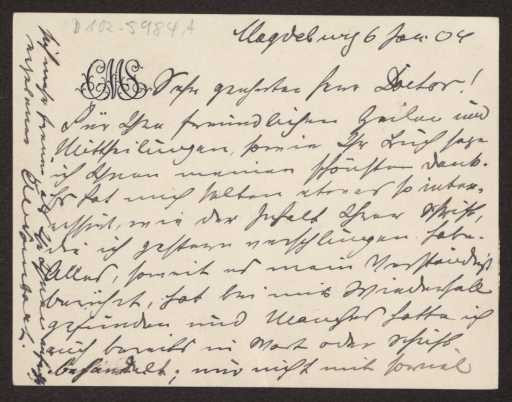 D 102-5984 A
Magdeburg 6 Jan. 04
CMS
Sehr geehrter Herr Doctor!
Für Ihre freundlichen Zeilen und
Mittheilungen, sowie Ihr Buch sage
ich Ihnen meinen schönsten Dank.
Es hat mich selten etwas so inter-
essirt, wie der Inhalt Ihrer Schrift,
die ich gestern verschlungen habe.
Alles, soweit es mein Verständniß
berührt, hat bei mir Wiederhall
gefunden und Manches hatte ich
auch bereits in Wort oder Schrift
behandelt; nur nicht mit soviel